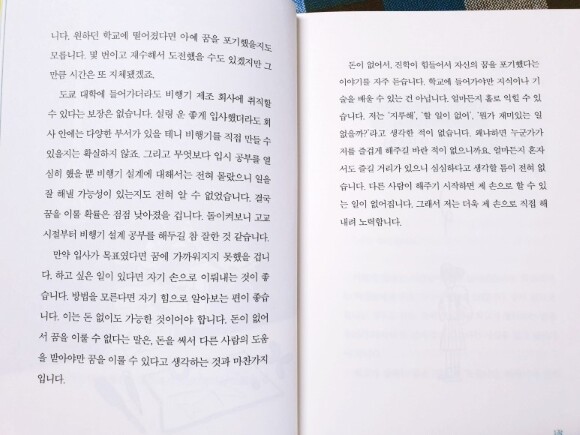 니다. 원하던 학교에 떨어졌다면 아예 꿈을 포기했을지도
모릅니다. 몇 번이고 재수해서 도전했을 수도 있겠지만 그
만큼 시간은 또 지체됐겠죠.
도쿄 대학에 들어가더라도 비행기 제조 회사에 취직할
수 있다는 보장은 없습니다. 설령 운 좋게 입사했더라도 회
사 안에는 다양한 부서가 있을 테니 비행기를 직접 만들 수
있을지는 확실하지 않죠. 그리고 무엇보다 입시 공부를 열
심히 했을 뿐 비행기 설계에 대해서는 전혀 몰랐으니 일을
잘 해낼 가능성이 있는지도 전혀 알 수 없었습니다. 결국
꿈을 이룰 확률은 점점 낮아졌을 겁니다. 돌이켜보니 고교
시절부터 비행기 설계 공부를 해두길 참 잘한 것 같습니다.
만약 입사가 목표였다면 꿈에 가까워지지 못했을 겁니
다. 하고 싶은 일이 있다면 자기 손으로 이뤄내는 것이 좋
습니다. 방법을 모른다면 자기 힘으로 알아보는 편이 좋습
니다. 이는 돈 없이도 가능한 것이어야 합니다. 돈이 없어
서 꿈을 이룰 수 없다는 말은, 돈을 써서 다른 사람의 도움
을 받아야만 꿈을 이룰 수 있다고 생각하는 것과 마찬가지
입니다.
돈이 없어서, 진학이 힘들어서 자신의 꿈을 포기했다는
이야기를 자주 듣습니다. 학교에 들어가야만 지식이나 기
술을 배울 수 있는 건 아닙니다. 얼마든지 홀로 익힐 수 있
습니다. 저는 '지루해', '할 일이 없어', '뭔가 재미있는 일
없을까?'라고 생각한 적이 없습니다. 왜냐하면 누군가가
저를 즐겁게 해주길 바란 적이 없으니까요. 얼마든지 혼자
서도 즐길 거리가 있으니 심심하다고 생각할 틈이 전혀 없
습니다. 다른 사람이 해주기 시작하면 제 손으로 할 수 있
는 일이 없어집니다. 그래서 저는 더욱 제 손으로 직접 해
내려 노력합니다.